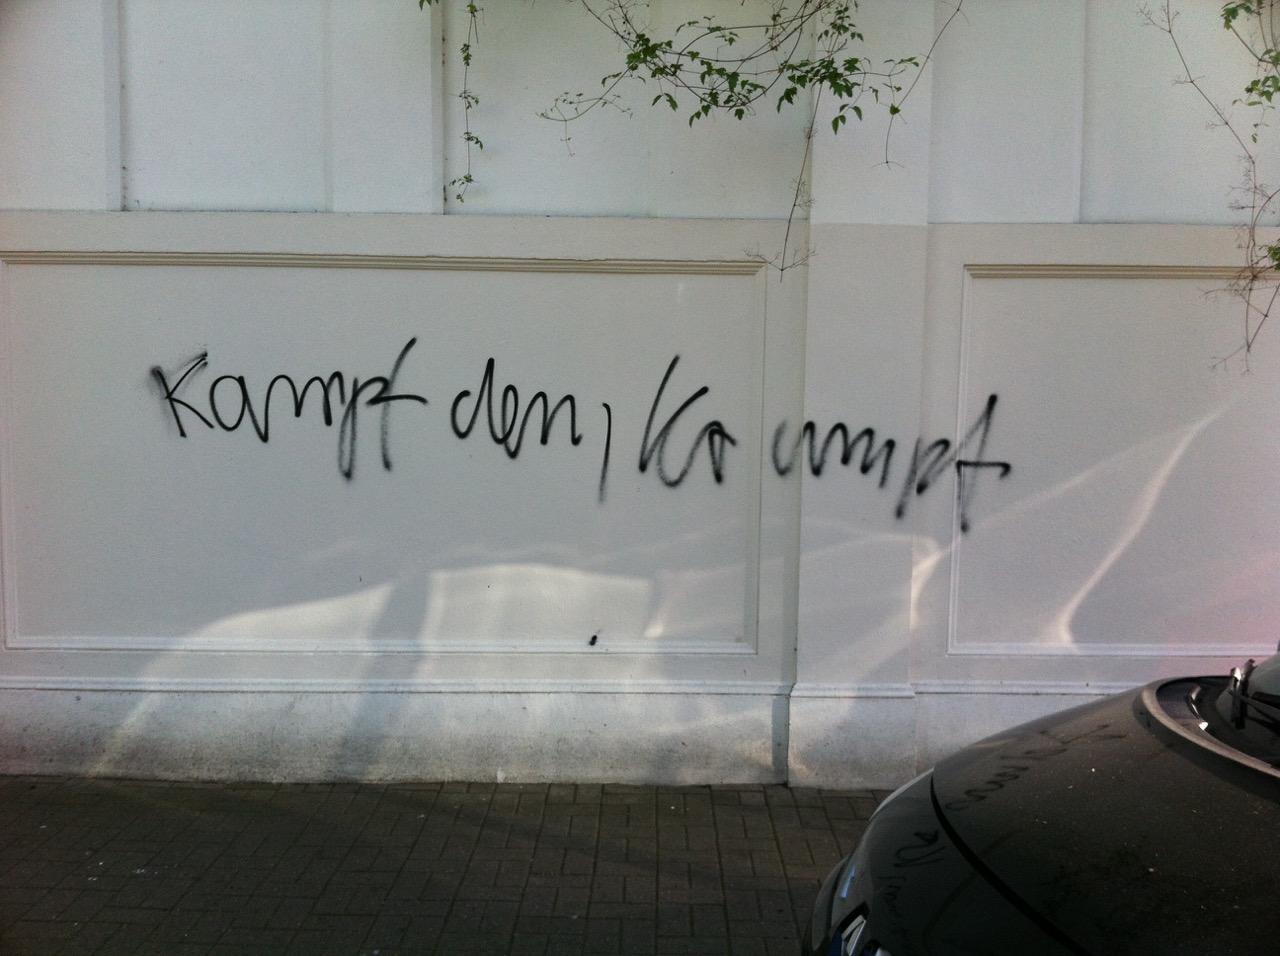 Kampf dem Krampf